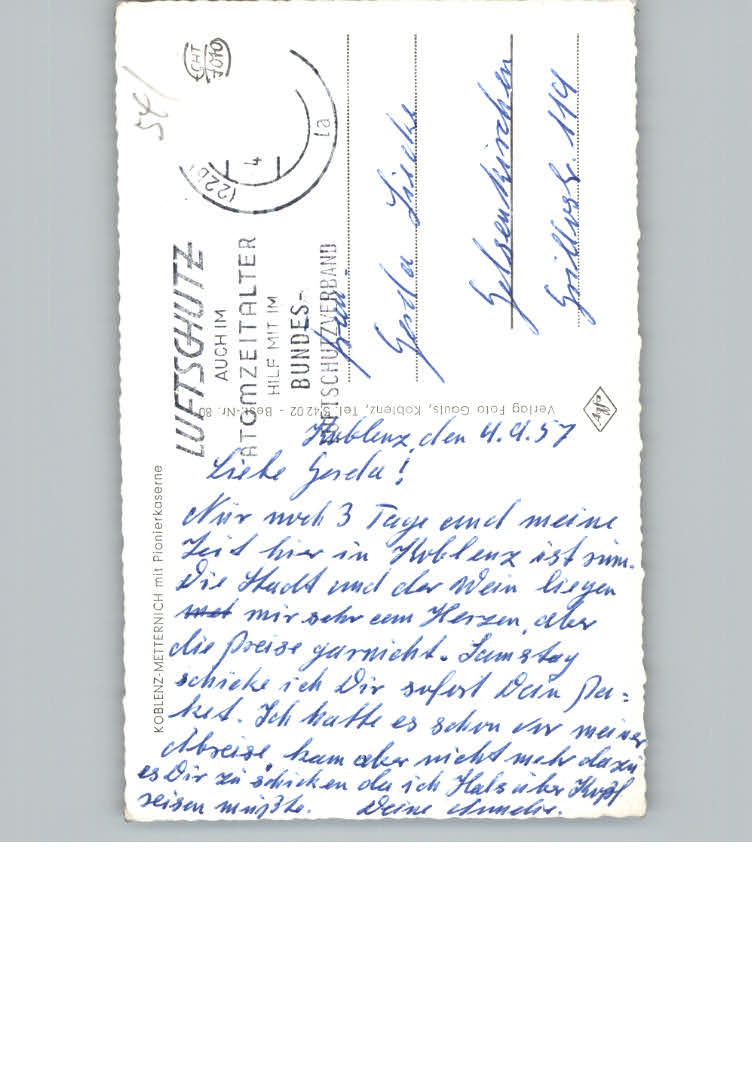 54/
ECHT
7010
(22b)
4
1a
LUFTSCHUTZ
AUCH IM
ATOMZEITALTER
HILF MIT IM
BUNDES-
LUFTSCHUTZVERBAND
Gerda
Gelsenkirchen
Grillostr. 119
Agfa
Verlag Foto Gauls, Koblenz, Tel. 54202 - Best.-Nr. 80
KOBLENZ-METTERNICH mit Pionierkaserne
Koblenz, den 4.4.57
Liebe Gerda!
Nur noch 3 Tage und meine
Zeit hier in Koblenz ist rum.
Die Stadt und der Wein liegen
mir sehr am Herzen, aber
die Preise garnicht. Samstag
schicke ich Dir sofort Dein Pa=
ket. Ich hatte es schon vor meiner
Abreise, kam aber nicht mehr dazu
es Dir zu schicken da ich Hals über Kopf
reisen mußte. Deine